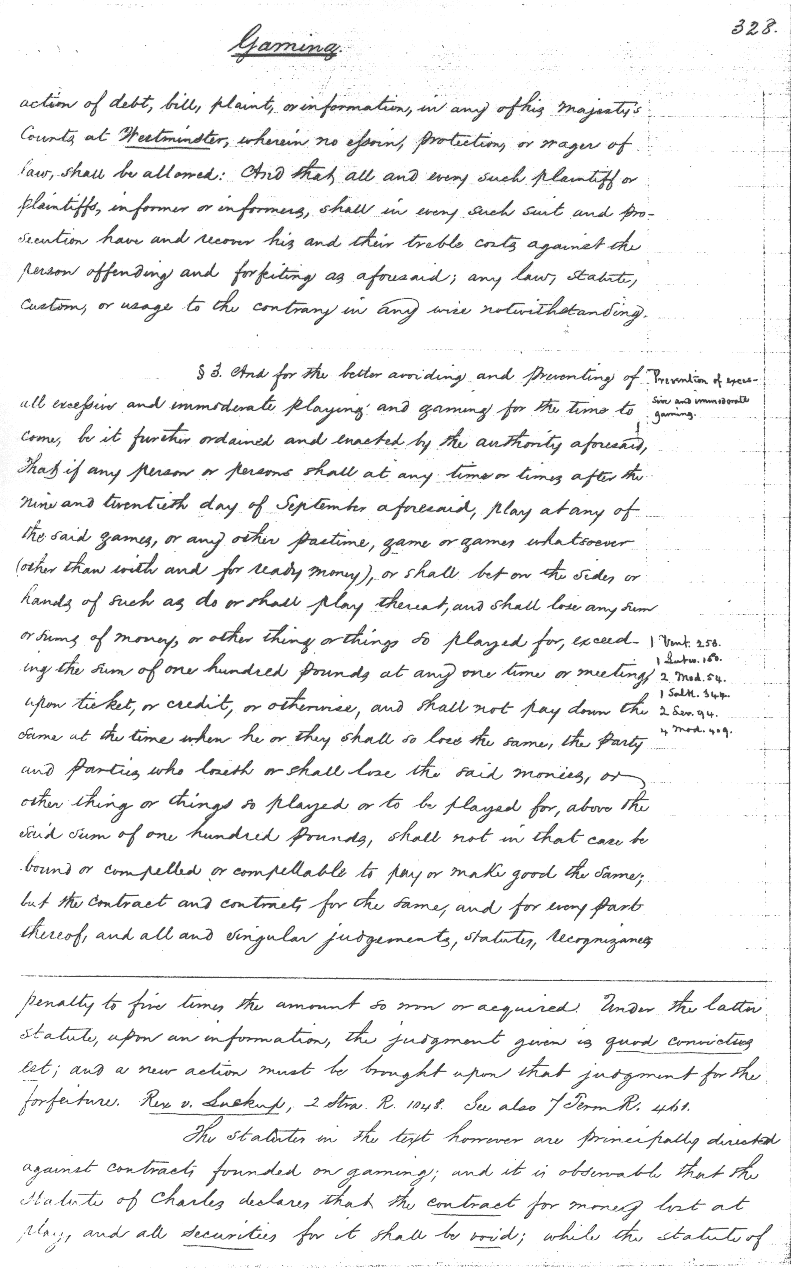 328.
Gaming.
action of debt, bill, plaint, or information, in any of his Majesty's
Courts at Westminster, wherein no essoin, protection, or wager of
law, shall be allowed: And that all and every such plaintiff or
plaintiffs, informer or informers, shall in every such suit and pro-
secution have and recover his and their treble costs against the
person offending and forfeiting as aforesaid; any law, statute,
custom, or usage to the contrary in any wise notwithstanding.
§ 3. And for the better avoiding and preventing of
all excessive and immoderate playing and gaming for the time to
come, be it further ordained and enacted by the authority aforesaid,
That if any person or persons shall at any time or times after the
nine and twentieth day of September aforesaid, play at any of
the said games, or any other pastime, game or games whatsoever
(other than with and for ready money), or shall bet on the sides or
hands of such as do or shall play thereat, and shall lose any sum
or sums of money, or other thing or things so played for, exceed-
ing the sum of one hundred pounds at any one time or meeting,
upon ticket, or credit, or otherwise, and shall not pay down the
same at the time when he or they shall so lose the same, the party
and parties who loseth or shall lose the said monies, or
other thing or things so played or to be played for, above the
said sum of one hundred pounds, shall not in that case be
bound or compelled or compellable to pay or make good the same;
but the contract and contracts for the same, and for every part
thereof, and all and singular judgements, statutes, recognizances
Prevention of exces-
sive and immoderate
gaming.
1 Vent. 253.
1 Lutw. 180.
2 Mod. 54.
1 Salk. 344.
2 Lev. 94.
4 Mod. 409.
penalty to five times the amount so won or acquired. Under the latter
statute, upon an information, the judgment given is quod convictus
est; and a new action must be brought upon that judgment for the
forfeiture. Rex v. Luckup, 2 Stra. R. 1048. See also 7 Term R. 461.
The statutes in the text however are principally directed
against contracts founded on gaming; and it is observable that the
statute of Charles declares that the contract for money lost at
play, and all securities for it shall be void; while the statute of